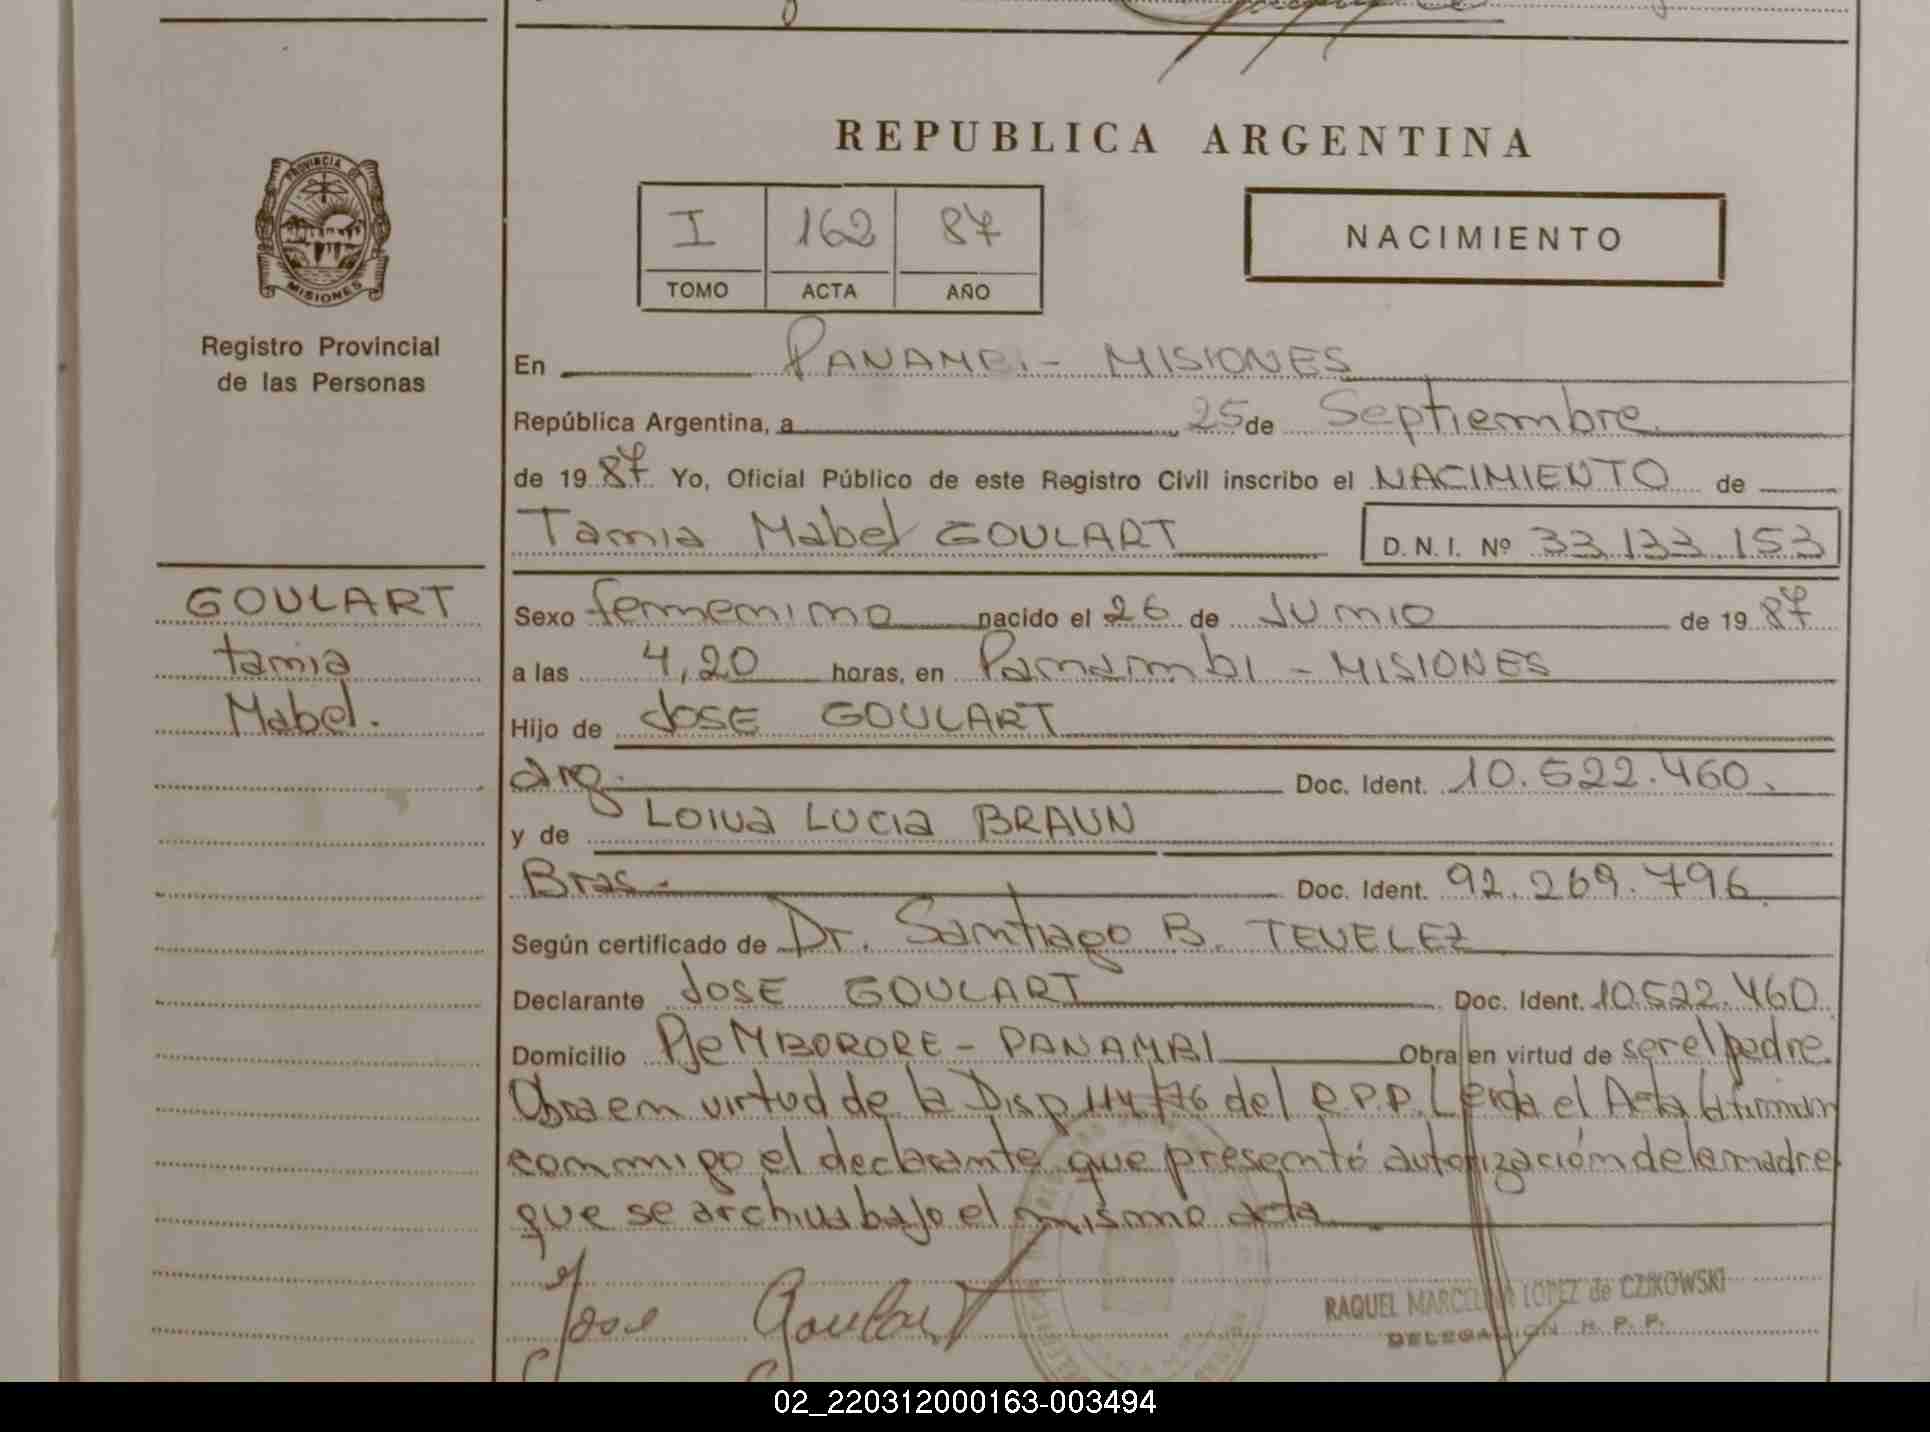 PROVINCIA DE
MISIONES
Registro Provincial
de las Personas
GOULART
tania
Mabel.
REPUBLICA ARGENTINA
I 162 87
TOMO ACTA AÑO
NACIMIENTO
En PANAMBI - MISIONES
República Argentina, a 25 de Septiembre
de 1987 Yo, Oficial Público de este Registro Civil inscribo el NACIMIENTO de
Tania Mabel GOULART D.N.I. Nº 33.133.153
Sexo femenino nacido el 26 de Junio de 1987
a las 4,20 horas, en Panambi - MISIONES
Hijo de JOSE GOULART
Arg. Doc. Ident. 10.522.460.
y de Loiva Lucia BRAUN
Bras - Doc. Ident. 92.269.796
Según certificado de Dr. Santiago B. TEVELEZ
Declarante JOSE GOULART Doc. Ident. 10.522.460
Domicilio Pje MBORORE - PANAMBI Obra en virtud de ser el padre.
Obra en virtud de la Disp 114/76 del R.P.P. Leida el Acta la firman
conmigo el declarante que presentó autorización de la madre
que se archiva bajo el mismo acta
Jose Goulart
RAQUEL MARCELINA LOPEZ de CZIKOWSKI
DELEGACION R. P. P.
02_220312000163-003494